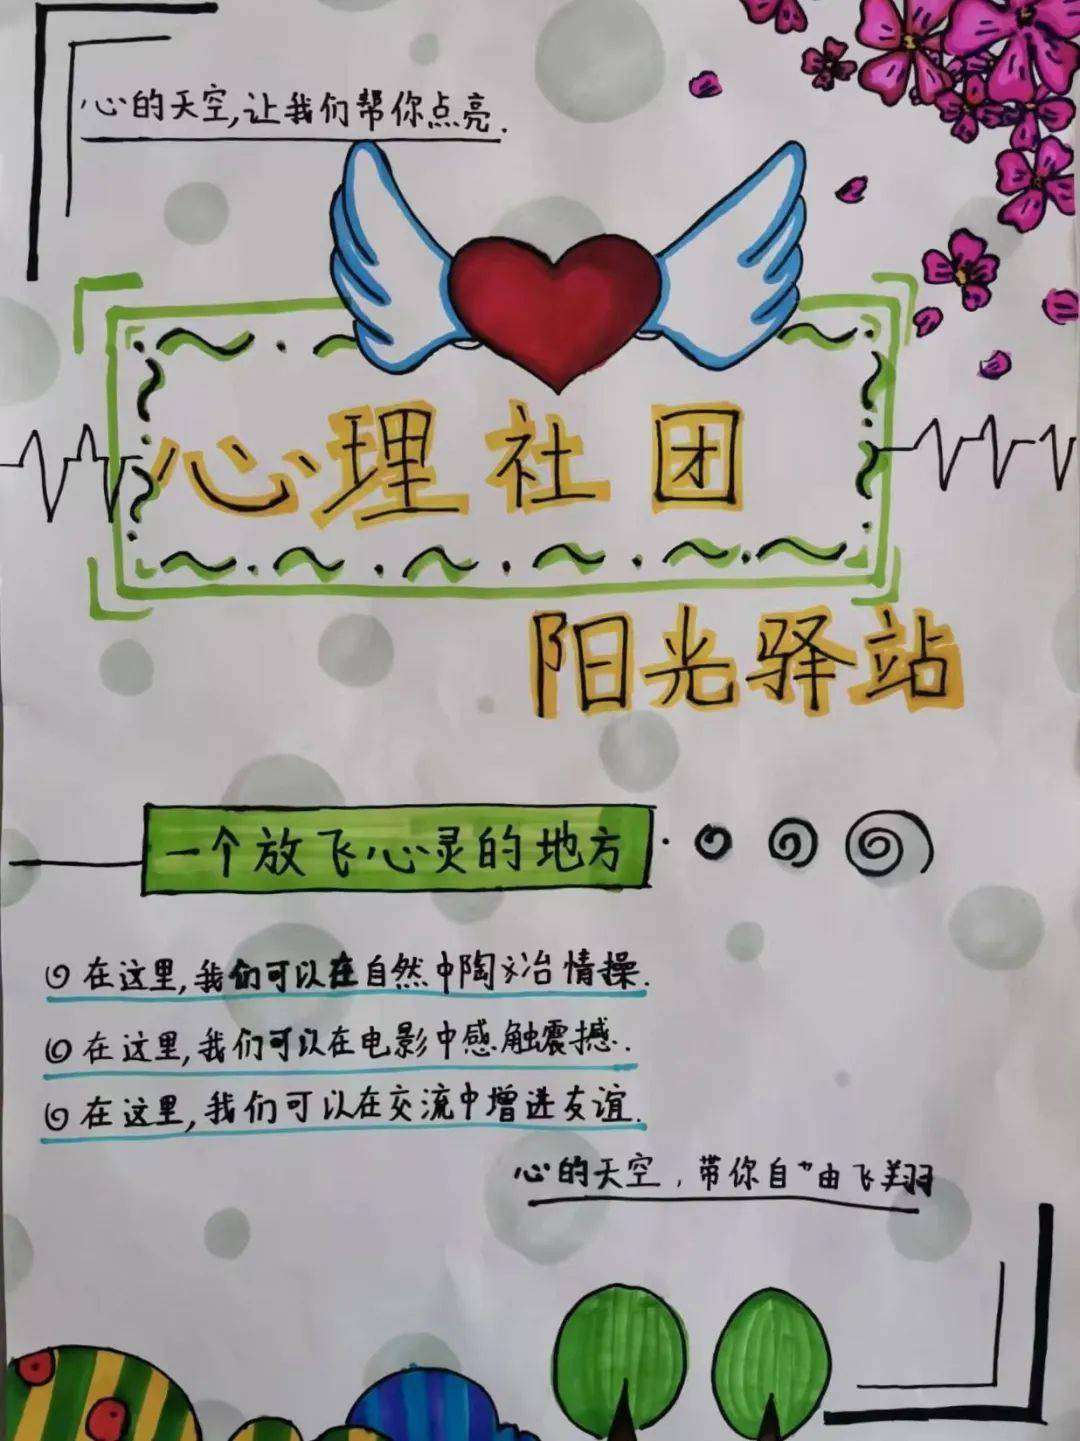 心的天空,让我们帮你点亮.
心理社团
阳光驿站
一个放飞心灵的地方
在这里,我们可以在自然中陶冶情操.
在这里,我们可以在电影中感触震撼.
在这里,我们可以在交流中增进友谊.
心的天空,带你自由飞翔